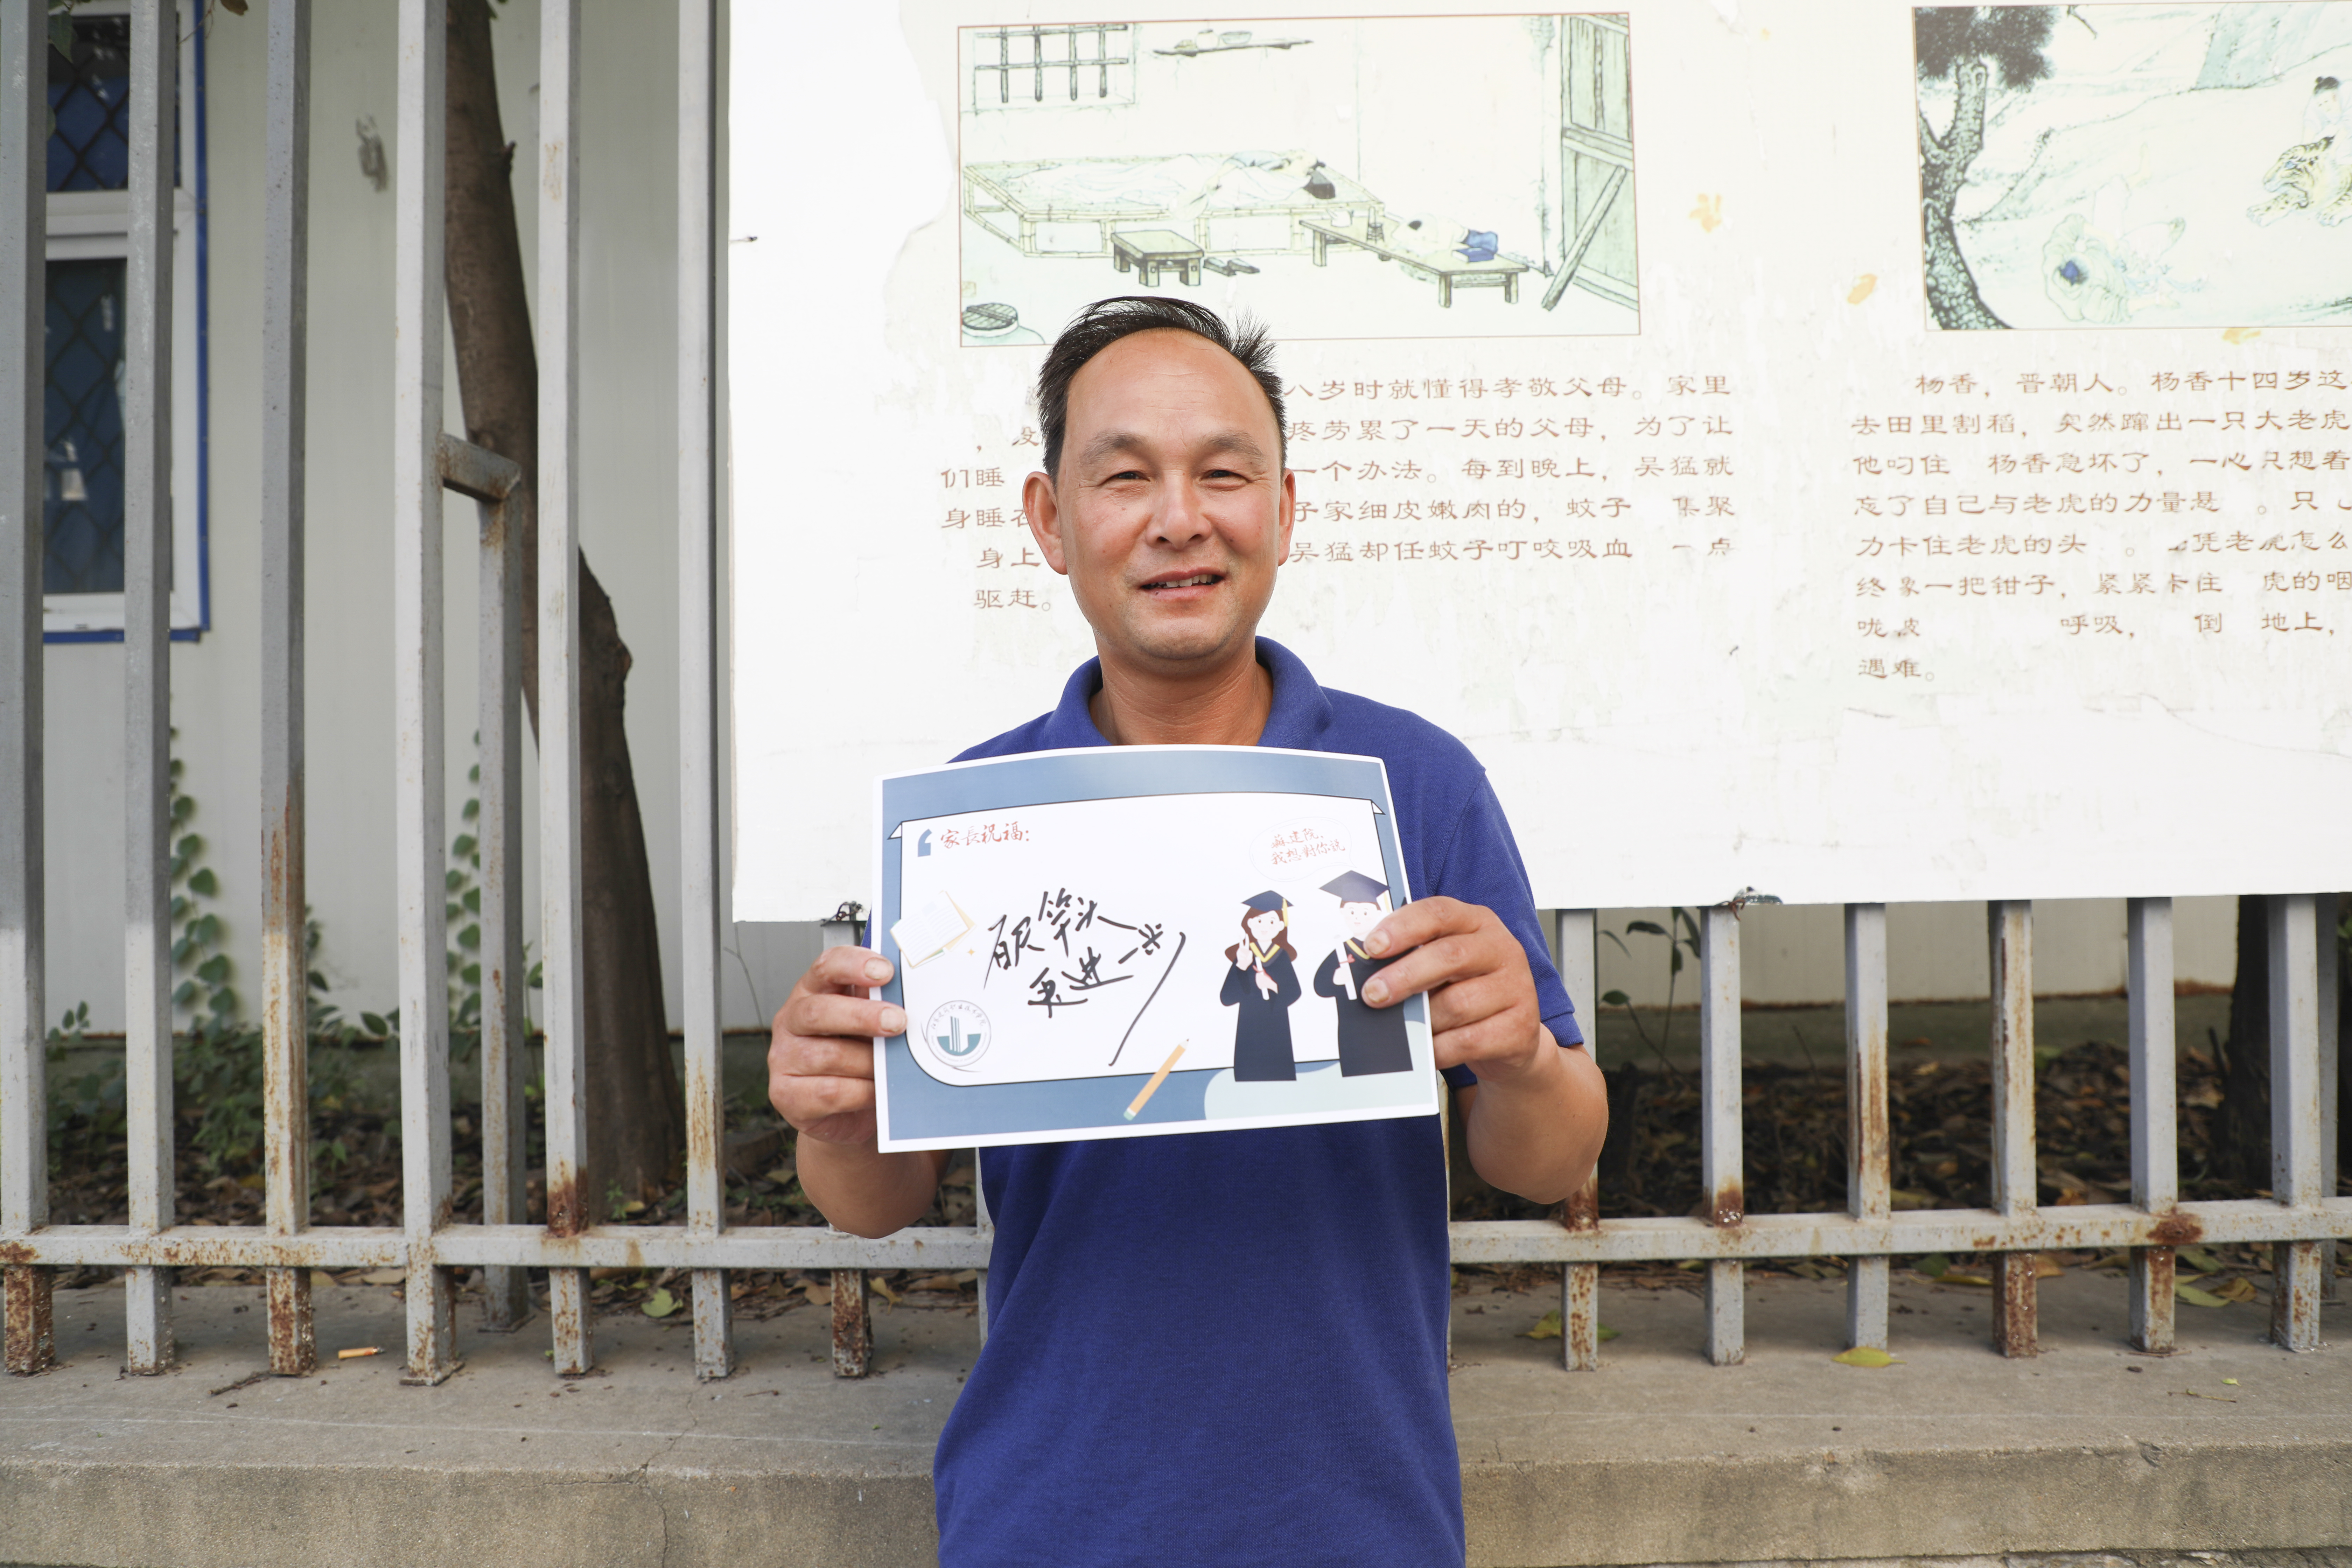 八岁时就懂得孝敬父母。家里
疼劳累了一天的父母，为了让
们睡 一个办法。每到晚上，吴猛就
身睡在 子家细皮嫩肉的，蚊子 集聚
身上 吴猛却任蚊子叮咬吸血 一点
驱赶。
杨香，晋朝人。杨香十四岁这
去田里割稻，突然蹿出一只大老虎
他叼住 杨香急坏了，一心只想着
忘了自己与老虎的力量悬 。只
力卡住老虎的头 。 凭老虎怎么
终象一把钳子，紧紧卡住 虎的咽
咙 呼吸， 倒 地上，
遇难。
家長祝福：
蘇建院，
我想對你说
百尺竿头
更进一步